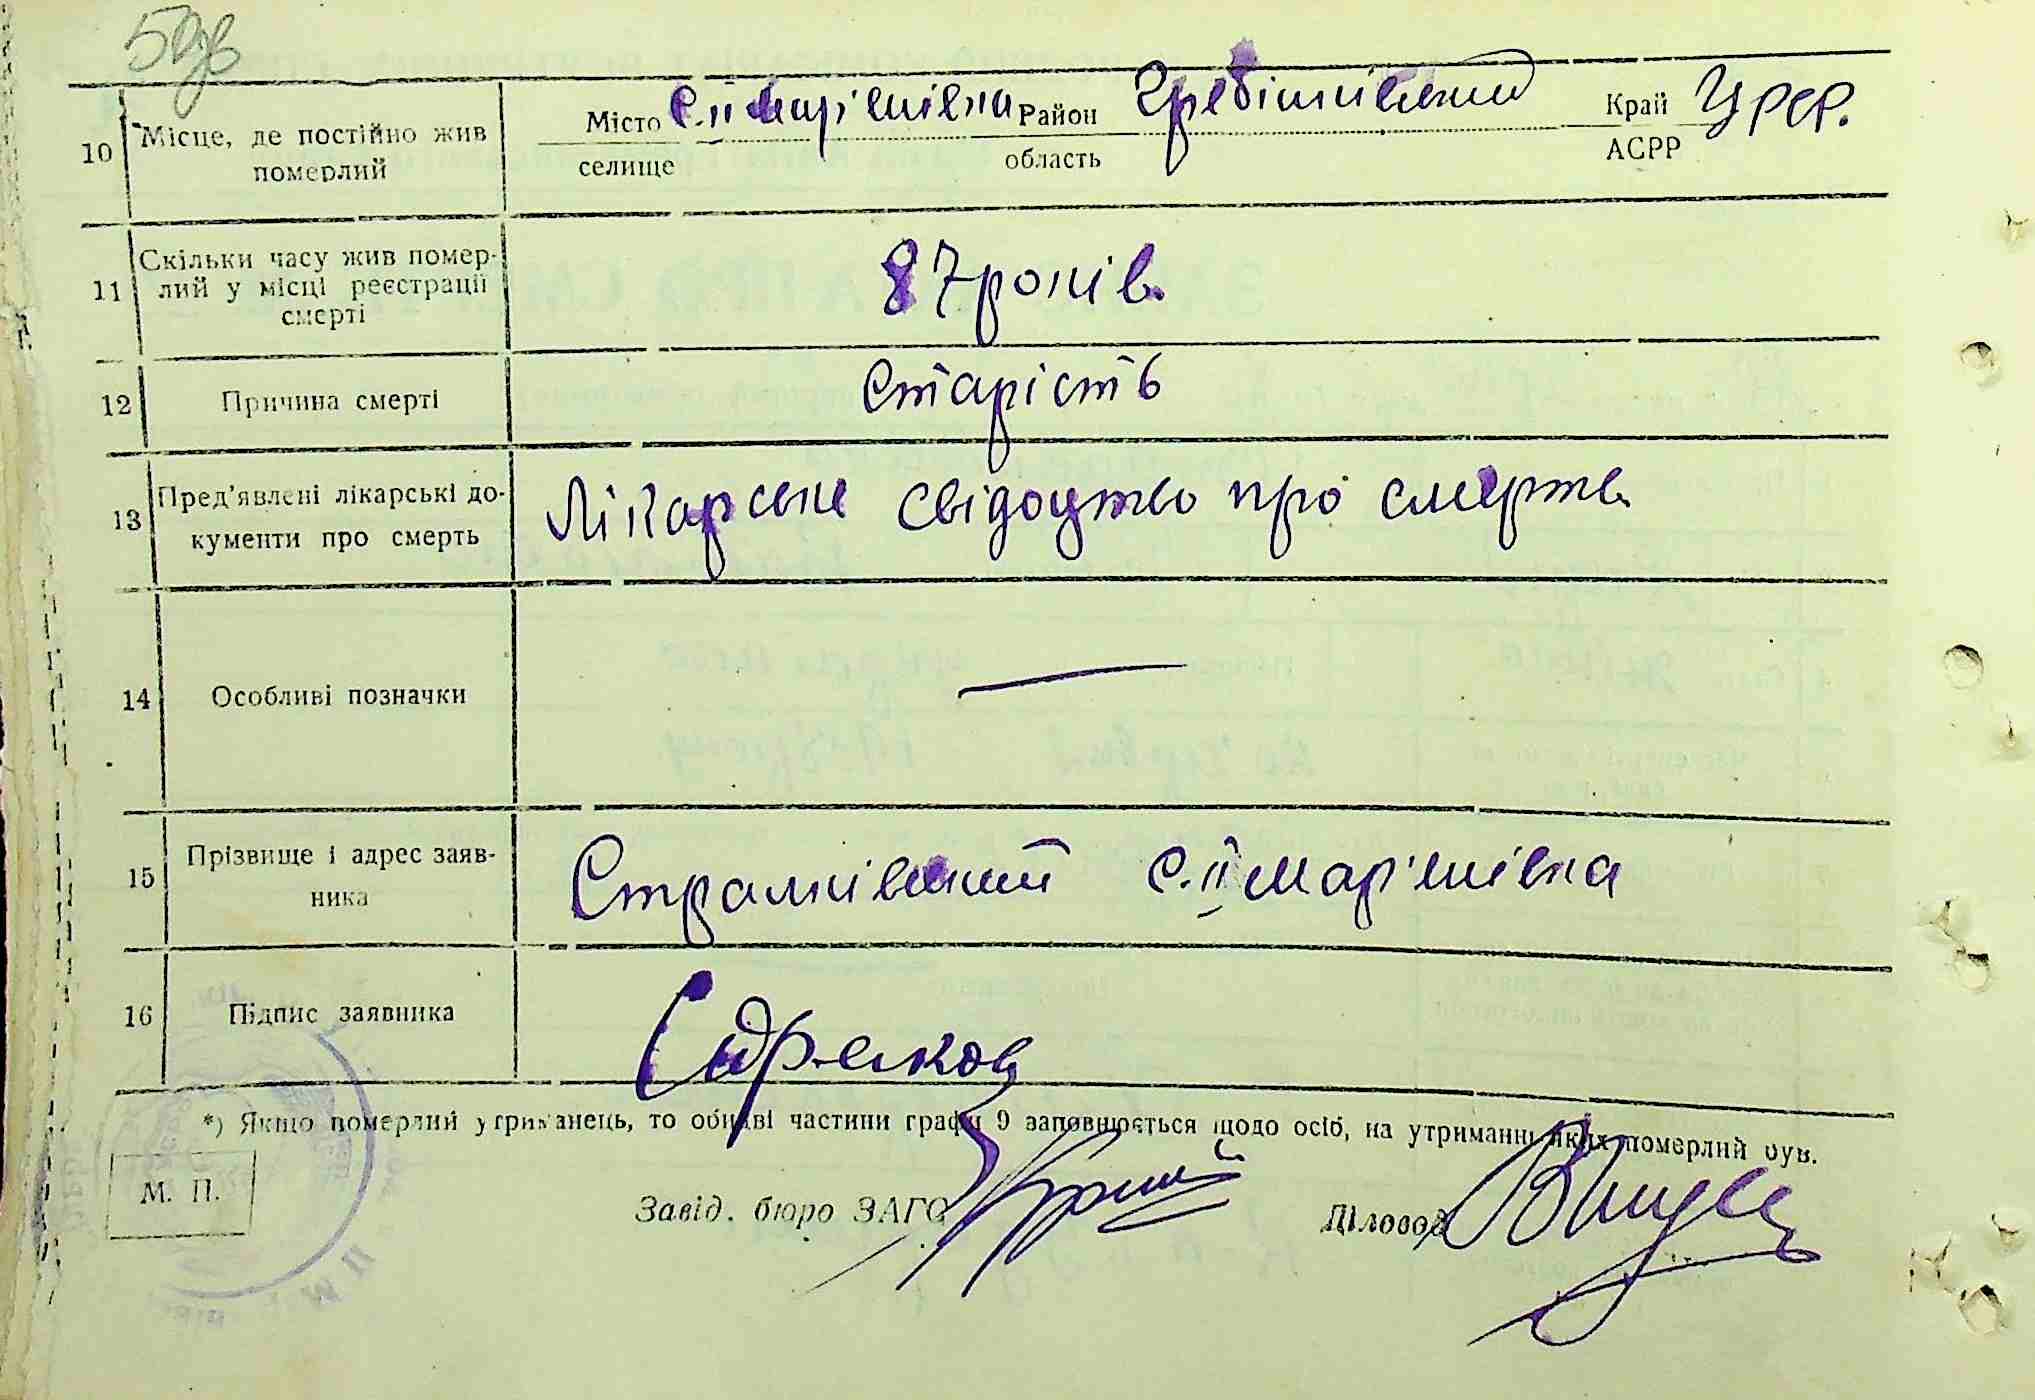 50зв
10 Місце, де постійно жив Місто с. ІІ Мар'янівка Район Гребінківський Край УРСР.
померлий селище область АСРР
11 Скільки часу жив помер-
лий у місці реєстрації
смерті
87 років
12 Причина смерті Старість
13 Пред'явлені лікарські до-
кументи про смерть
Лікарське свідоцтво про смерть
14 Особливі позначки —
15 Прізвище і адрес заяв-
ника
с. ІІ Мар'янівка
16 Підпис заявника
*) Якщо померлий утриманець, то обидві частини графи 9 заповнюється щодо осіб, на утриманні яких померлий був.
М. П.
Завід. бюро ЗАГС Діловод